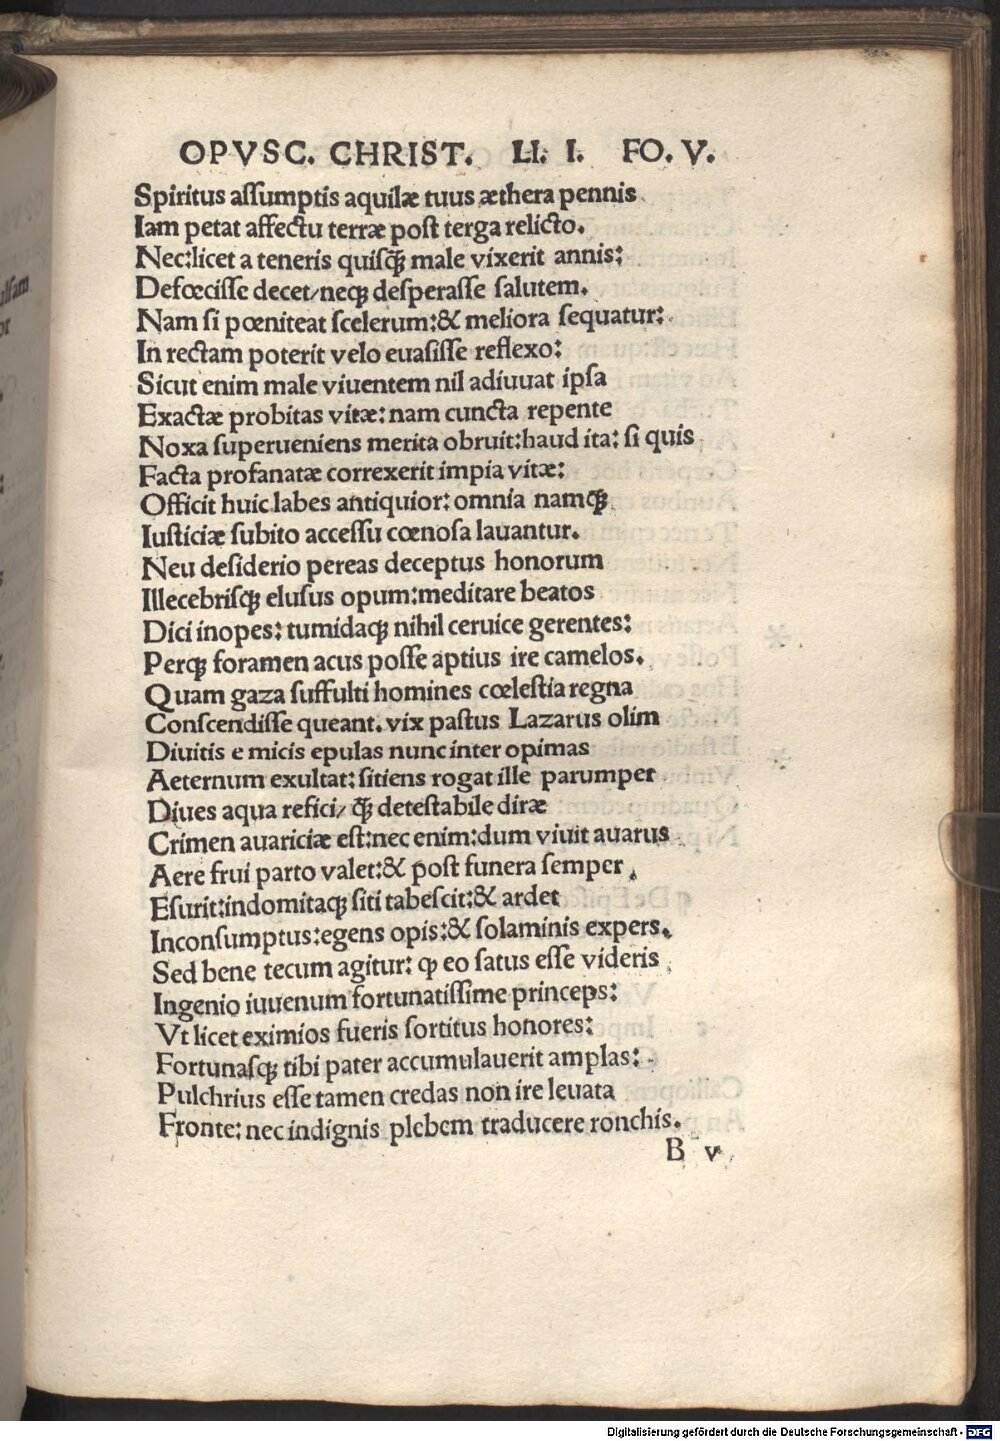 OPVSC. CHRIST. LI. I. FO. V.
Spiritus assumptis aquilæ tuus æthera pennis
Iam petat affectu terræ post terga relicto.
Nec:licet a teneris quisq̃ male vixerit annis:
Defœcisse decet/neqꝫ desperasse salutem.
Nam si pœniteat scelerum:& meliora sequatur:
In rectam poterit velo euasisse reflexo:
Sicut enim male viuentem nil adiuuat ipsa
Exactæ probitas vitæ: nam cuncta repente
Noxa superueniens merita obruit:haud ita: si quis
Facta profanatæ correxerit impia vitæ:
Officit huic labes antiquior: omnia namqꝫ
Iusticiæ subito accessu cœnosa lauantur.
Neu desiderio pereas deceptus honorum
Illecebrisqꝫ elusus opum:meditare beatos
Dici inopes: tumidaqꝫ nihil ceruice gerentes:
Perqꝫ foramen acus posse aptius ire camelos.
Quam gaza suffulti homines cœlestia regna
Conscendisse queant. vix pastus Lazarus olim
Diuitis e micis epulas nunc inter opimas
Aeternum exultat: sitiens rogat ille parumper
Diues aqua refici/ q̃ detestabile diræ
Crimen auariciæ est:nec enim:dum viuit auarus
Aere frui parto valet:& post funera semper
Esurit:indomitaqꝫ siti tabescit:& ardet
Inconsumptus:egens opis:& solaminis expers.
Sed bene tecum agitur: ꝙ eo satus esse videris
Ingenio iuuenum fortunatissime princeps:
Vt licet eximios fueris sortitus honores:
Fortunasqꝫ tibi pater accumulauerit amplas:
Pulchrius esse tamen credas non ire leuata
Fronte: nec indignis plebem traducere ronchis.
B v
Digitalisierung gefördert durch die Deutsche Forschungsgemeinschaft - DFG